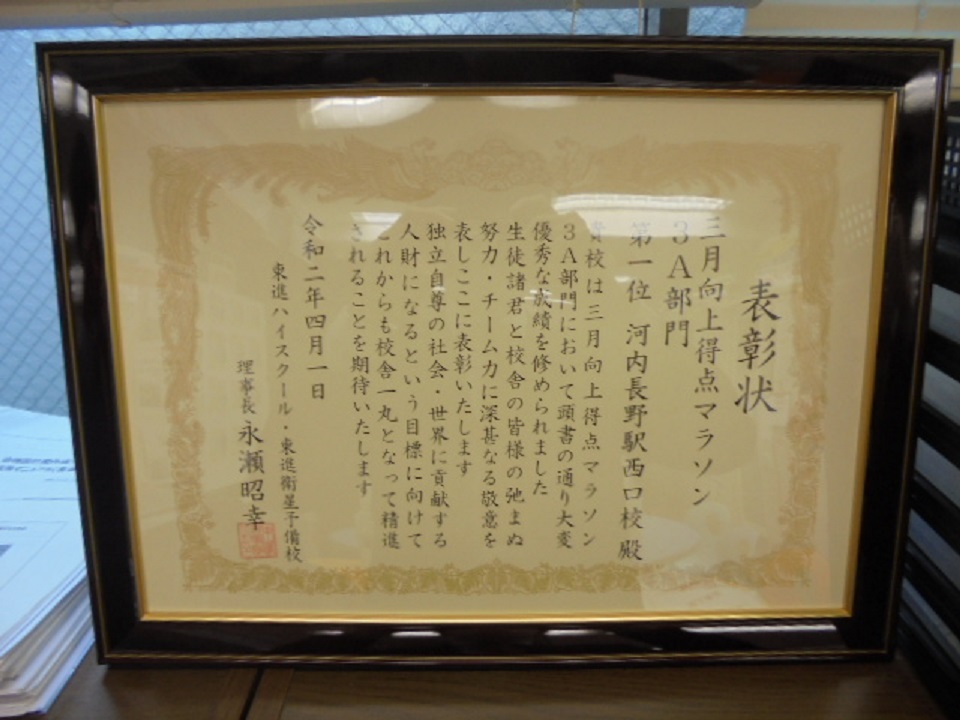 表彰状
三月向上得点マラソン
３Ａ部門
第一位 河内長野駅西口校 殿
貴校は三月向上得点マラソン
３Ａ部門において頭書の通り大変
優秀な成績を修められました
生徒諸君と校舎の皆様の弛まぬ
努力・チーム力に深甚なる敬意を
表しここに表彰いたします
独立自尊の社会・世界に貢献する
人財になるという目標に向けて
これからも校舎一丸となって精進
されることを期待いたします
令和二年四月一日
東進ハイスクール・東進衛星予備校
理事長 永瀬昭幸